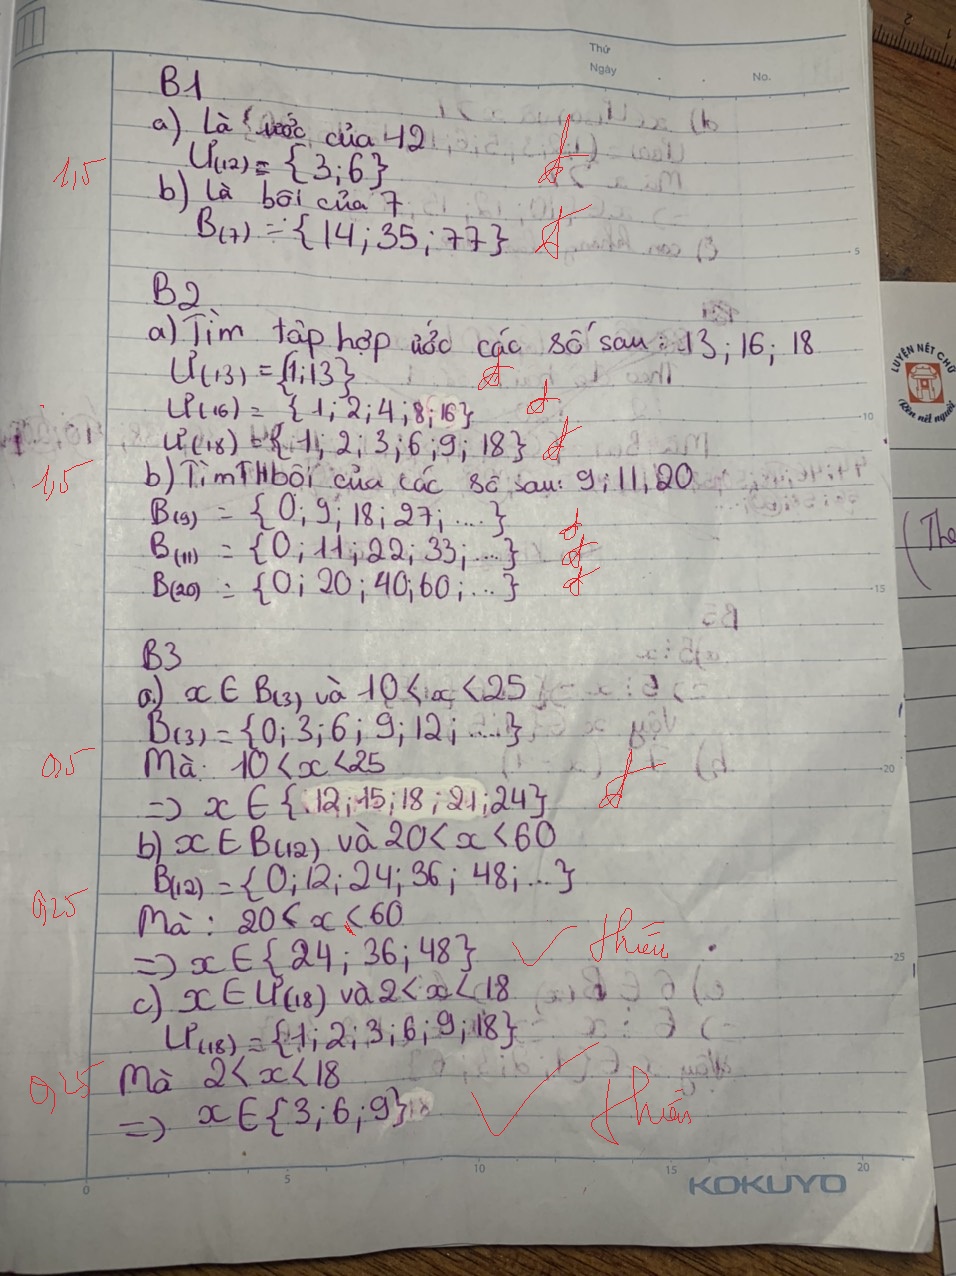 Thứ
Ngày . . No.
B1
a) Là ước của 12
1,5
Ư(12) = {3;6}
b) Là bội của 7
B(7) = {14;35;77}
B2
a) Tìm tập hợp ước các số sau: 13;16;18
Ư(13) = {1;13}
Ư(16) = {1;2;4;8;16}
Ư(18) = {1;2;3;6;9;18}
1,5
b) Tìm TH bội của các số sau: 9;11;20
B(9) = {0;9;18;27;....}
B(11) = {0;11;22;33;...}
B(20) = {0;20;40;60;...}
B3
a) x∈B(3) và 10<x<25
B(3) = {0;3;6;9;12;....}
0,5
Mà: 10<x<25
=> x∈{12;15;18;21;24}
b) x∈B(12) và 20<x<60
B(12) = {0;12;24;36;48;...}
0,25
Mà: 20<x<60
=> x∈{24;36;48} thiếu
c) x∈Ư(18) và 2<x<18
Ư(18) = {1;2;3;6;9;18}
0,25
Mà 2<x<18
=> x∈{3;6;9} thiếu
0 5 10 15 20
KOKUYO
5
10
15
20
25
LUYỆN NÉT CHỮ
Rèn nết người
(The